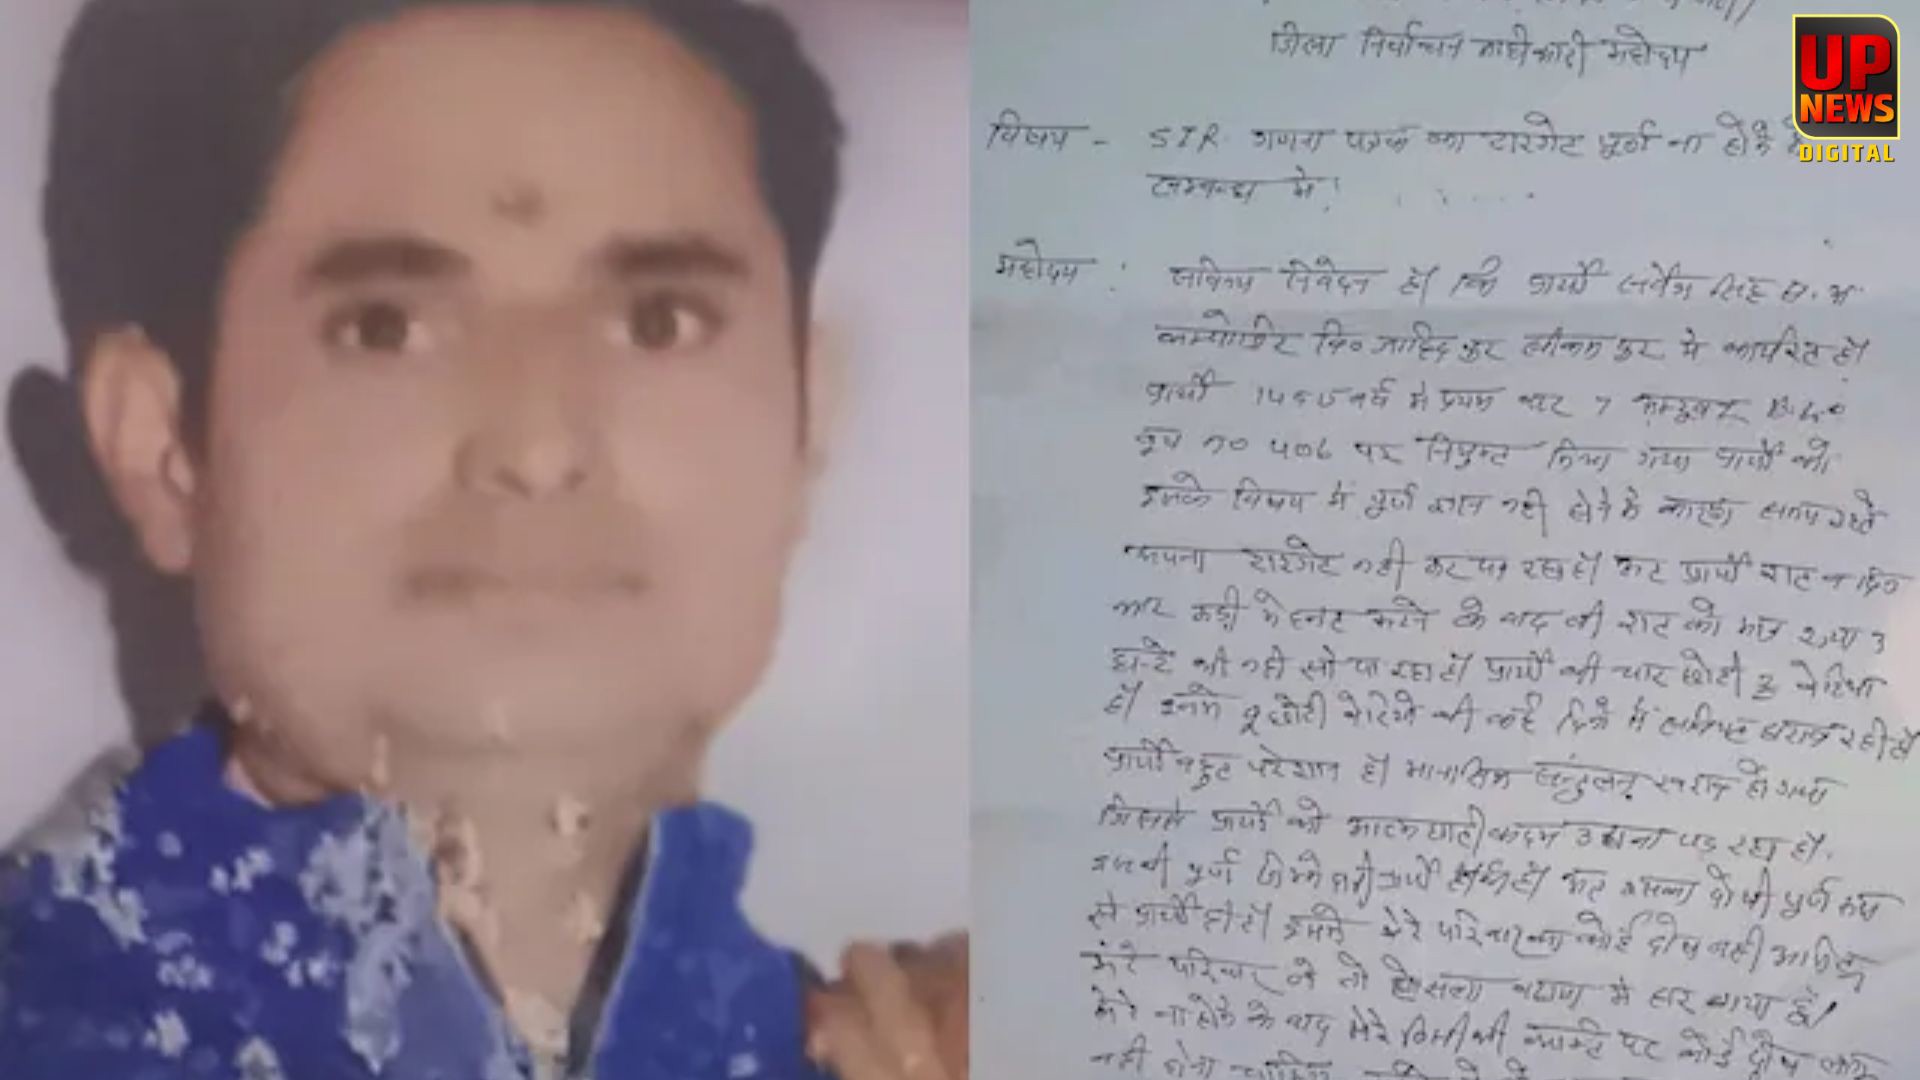 जिला निर्वाचन अधिकारी महोदय
UP
NEWS
DIGITAL
विषय - SIR गणना पत्रक का टारगेट पूर्ण ना होने के
सम्बन्ध में।
महोदय :
सविनय निवेदन है। कि प्रार्थी सर्वेश सिंह स.अ.
कम्पोजिट वि० जाहिदपुर सीकमपुर में कार्यरत है।
प्रार्थी वर्ष में प्रथम बार 7 अक्टूबर B.L.O
बूथ न० 406 पर नियुक्त किया गया प्रार्थी को
इसके विषय में पूर्ण ज्ञान नही होने के कारण समय रहते
अपना टारगेट नही कर पा रहा है। प्रार्थी रात व दिन
कड़ी मेहनत करने के बाद भी रात को मात्र 2 या 3
घन्टे भी नही सो पा रहा है। प्रार्थी की चार छोटी 2 बेटियां
है। इनमे 2 छोटी बेटियों की कई दिनो में तबियत खराब रही है
प्रार्थी बहुत परेशान है। मानसिक संतुलन खराब हो गया
जिससे प्रार्थी को आत्मघाती कदम उठाना पड़ रहा है।
इसकी पूर्ण जिम्मेदारी प्रार्थी दोषी पूर्ण रूप
से प्रार्थी ही है। इसमे मेरे परिवार का कोई दोष नही
मेरे परिवार ने तो हौसला बढाया मे हार गया हूँ।
मेरे ना होने के बाद मेरे किसी भी पर कोई दोष
नही होना चाहिए